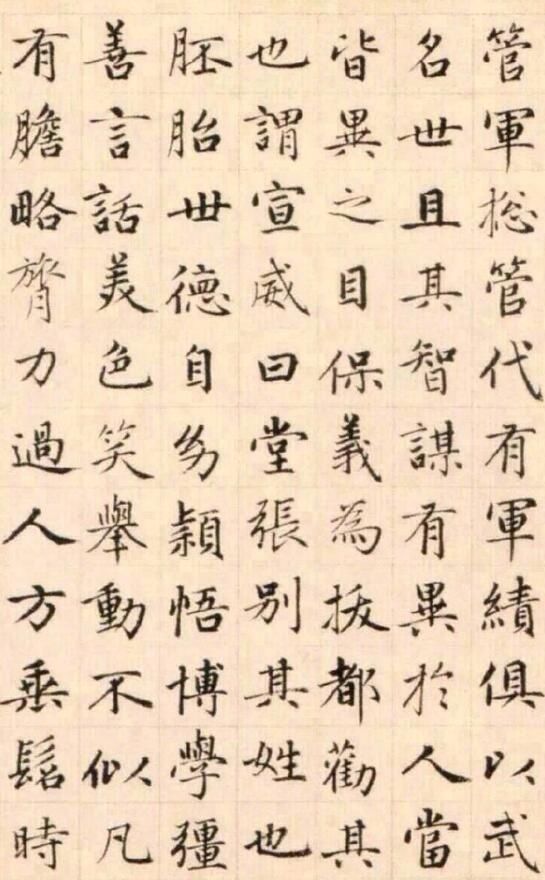 管軍捴管代有軍績俱以武
名世且其智謀有異於人當
皆異之目保義為拔都勸其
也謂宣威曰堂張別其姓也
胚胎世德自幼穎悟博學彊
善言話美色笑舉動不似凡
有膽略膂力過人方乗髫時